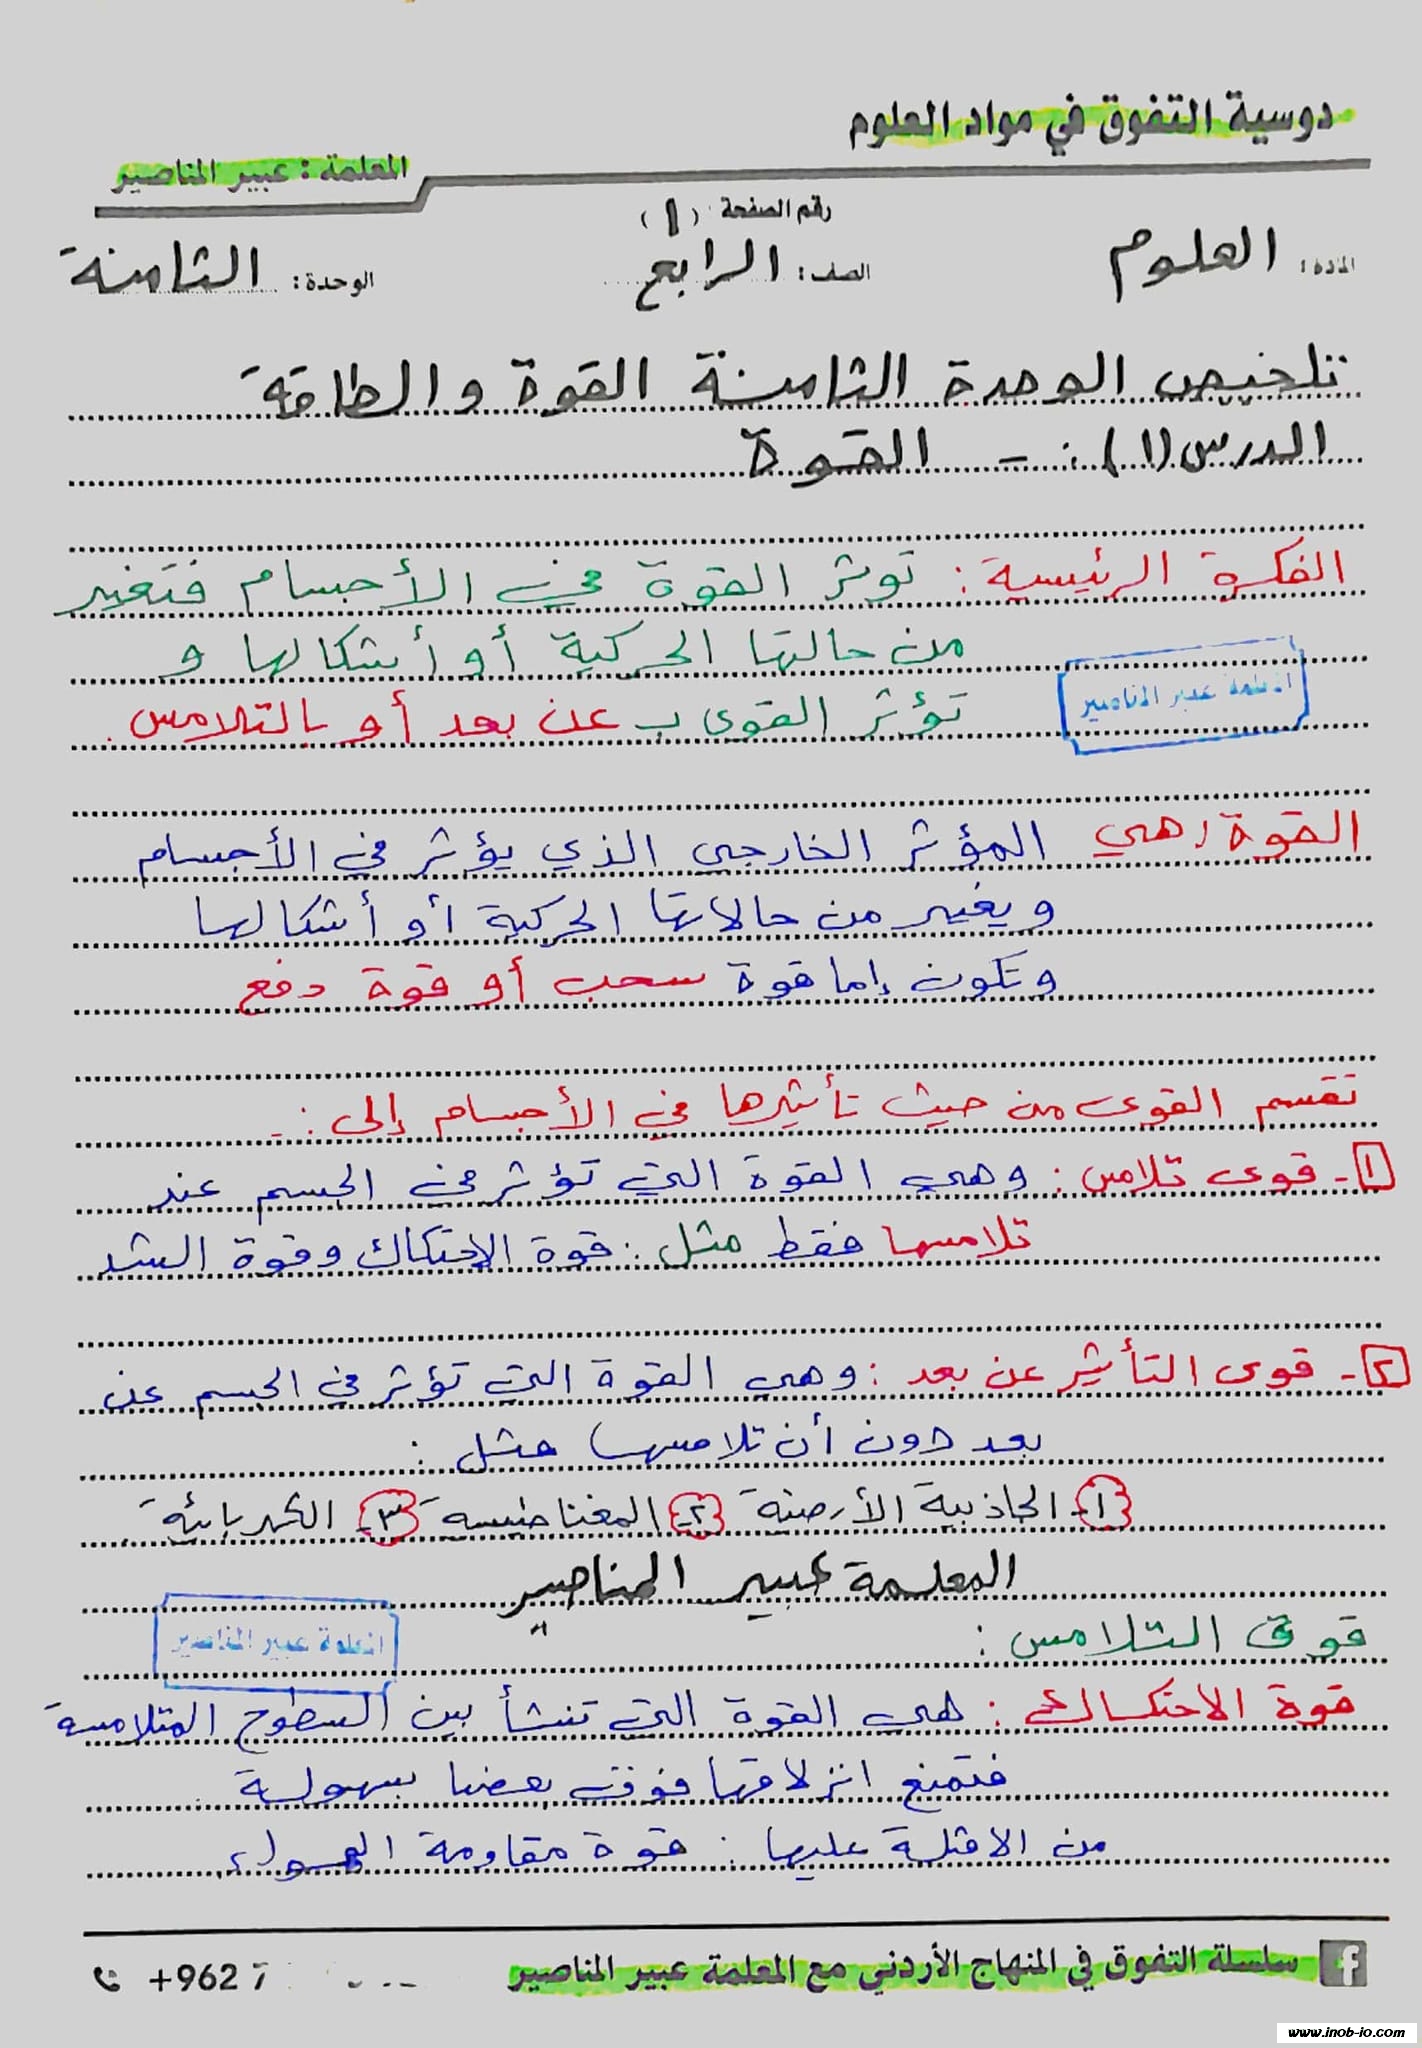 دوسية التفوق في مواد العلوم
المعلمة : عبير المناصير
رقم الصفحة (1)
المادة: العلوم
الصف: الرابع
الوحدة: الثامنة
تلخيص الوحدة الثامنة القوة والطاقة
الدرس (1) :- القوة
الفكرة الرئيسية: توثر القوة في الأجسام فتغير
من حالتها الحركية أو أشكالها و
تؤثر القوى ب عن بعد أو بالتلامس.
المعلمة عبير المناصير
القوة / هي المؤثر الخارجي الذي يؤثر في الأجسام
ويغير من حالاتها الحركية أو أشكالها
وتكون إما قوة سحب أو قوة دفع
تقسم القوى من حيث تأثيرها في الأجسام إلى :-
1- قوى تلامس : وهي القوة التي تؤثر في الجسم عند
تلامسها فقط مثل : قوة الاحتكاك وقوة الشد
2- قوى التأثير عن بعد : وهي القوة التي تؤثر في الجسم عن
بعد دون أن تلامسها مثل :
١- الجاذبية الأرضية ٢- المغناطيسية ٣- الكهربائية
المعلمة عبير المناصير
المعلمة عبير المناصير
قوى التلامس :
قوة الاحتكاك : هي القوة التي تنشأ بين السطوح المتلامسة
فتمنع انزلاقها فوق بعضها بسهولة
من الامثلة عليها : قوة مقاومة الهواء
سلسلة التفوق في المنهاج الأردني مع المعلمة عبير المناصير
+962 7
www.inob-io.com